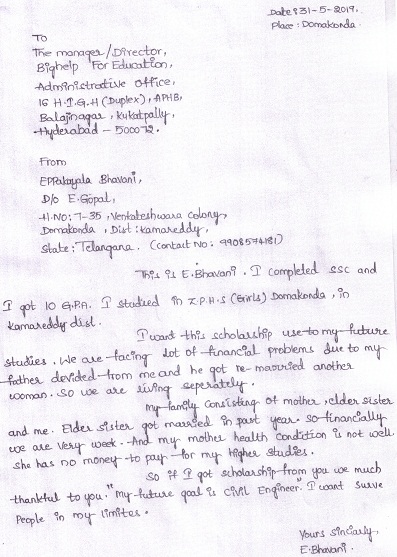 Date: 31-5-2019.
Place: Domakonda.
To
The manager/Director,
Bighelp For Education,
Administrative office,
16 H.I.G.H (Duplex), APHB,
Balajinagar, Kukatpally,
Hyderabad - 500072.
From
EPPakayala Bhavani,
D/o E.Gopal,
H.No: 7-35, Venkateshwara colony,
Domakonda, Dist: kamareddy,
State: Telangana. (Contact No: 9908574181)
This is E.Bhavani. I completed ssc and
I got 10 G.P.A. I studied in Z.P.H.S (Girls) Domakonda, in
Kamareddy dist.
I want this scholarship use to my future
studies. We are facing lot of financial problems due to my
father devided from me and he got re-married another
woman. So we are living seperately.
my family consisting of mother, elder sister
and me. Elder sister got married in past year. so financially
we are very week. And my mother health condition is not well.
she has no money to pay for my higher studies.
So if I got scholarship from you we much
thankful to you. "my future goal is civil Engineer". I want surve
People in my limites.
Yours sinciarly,
E.Bhavani.